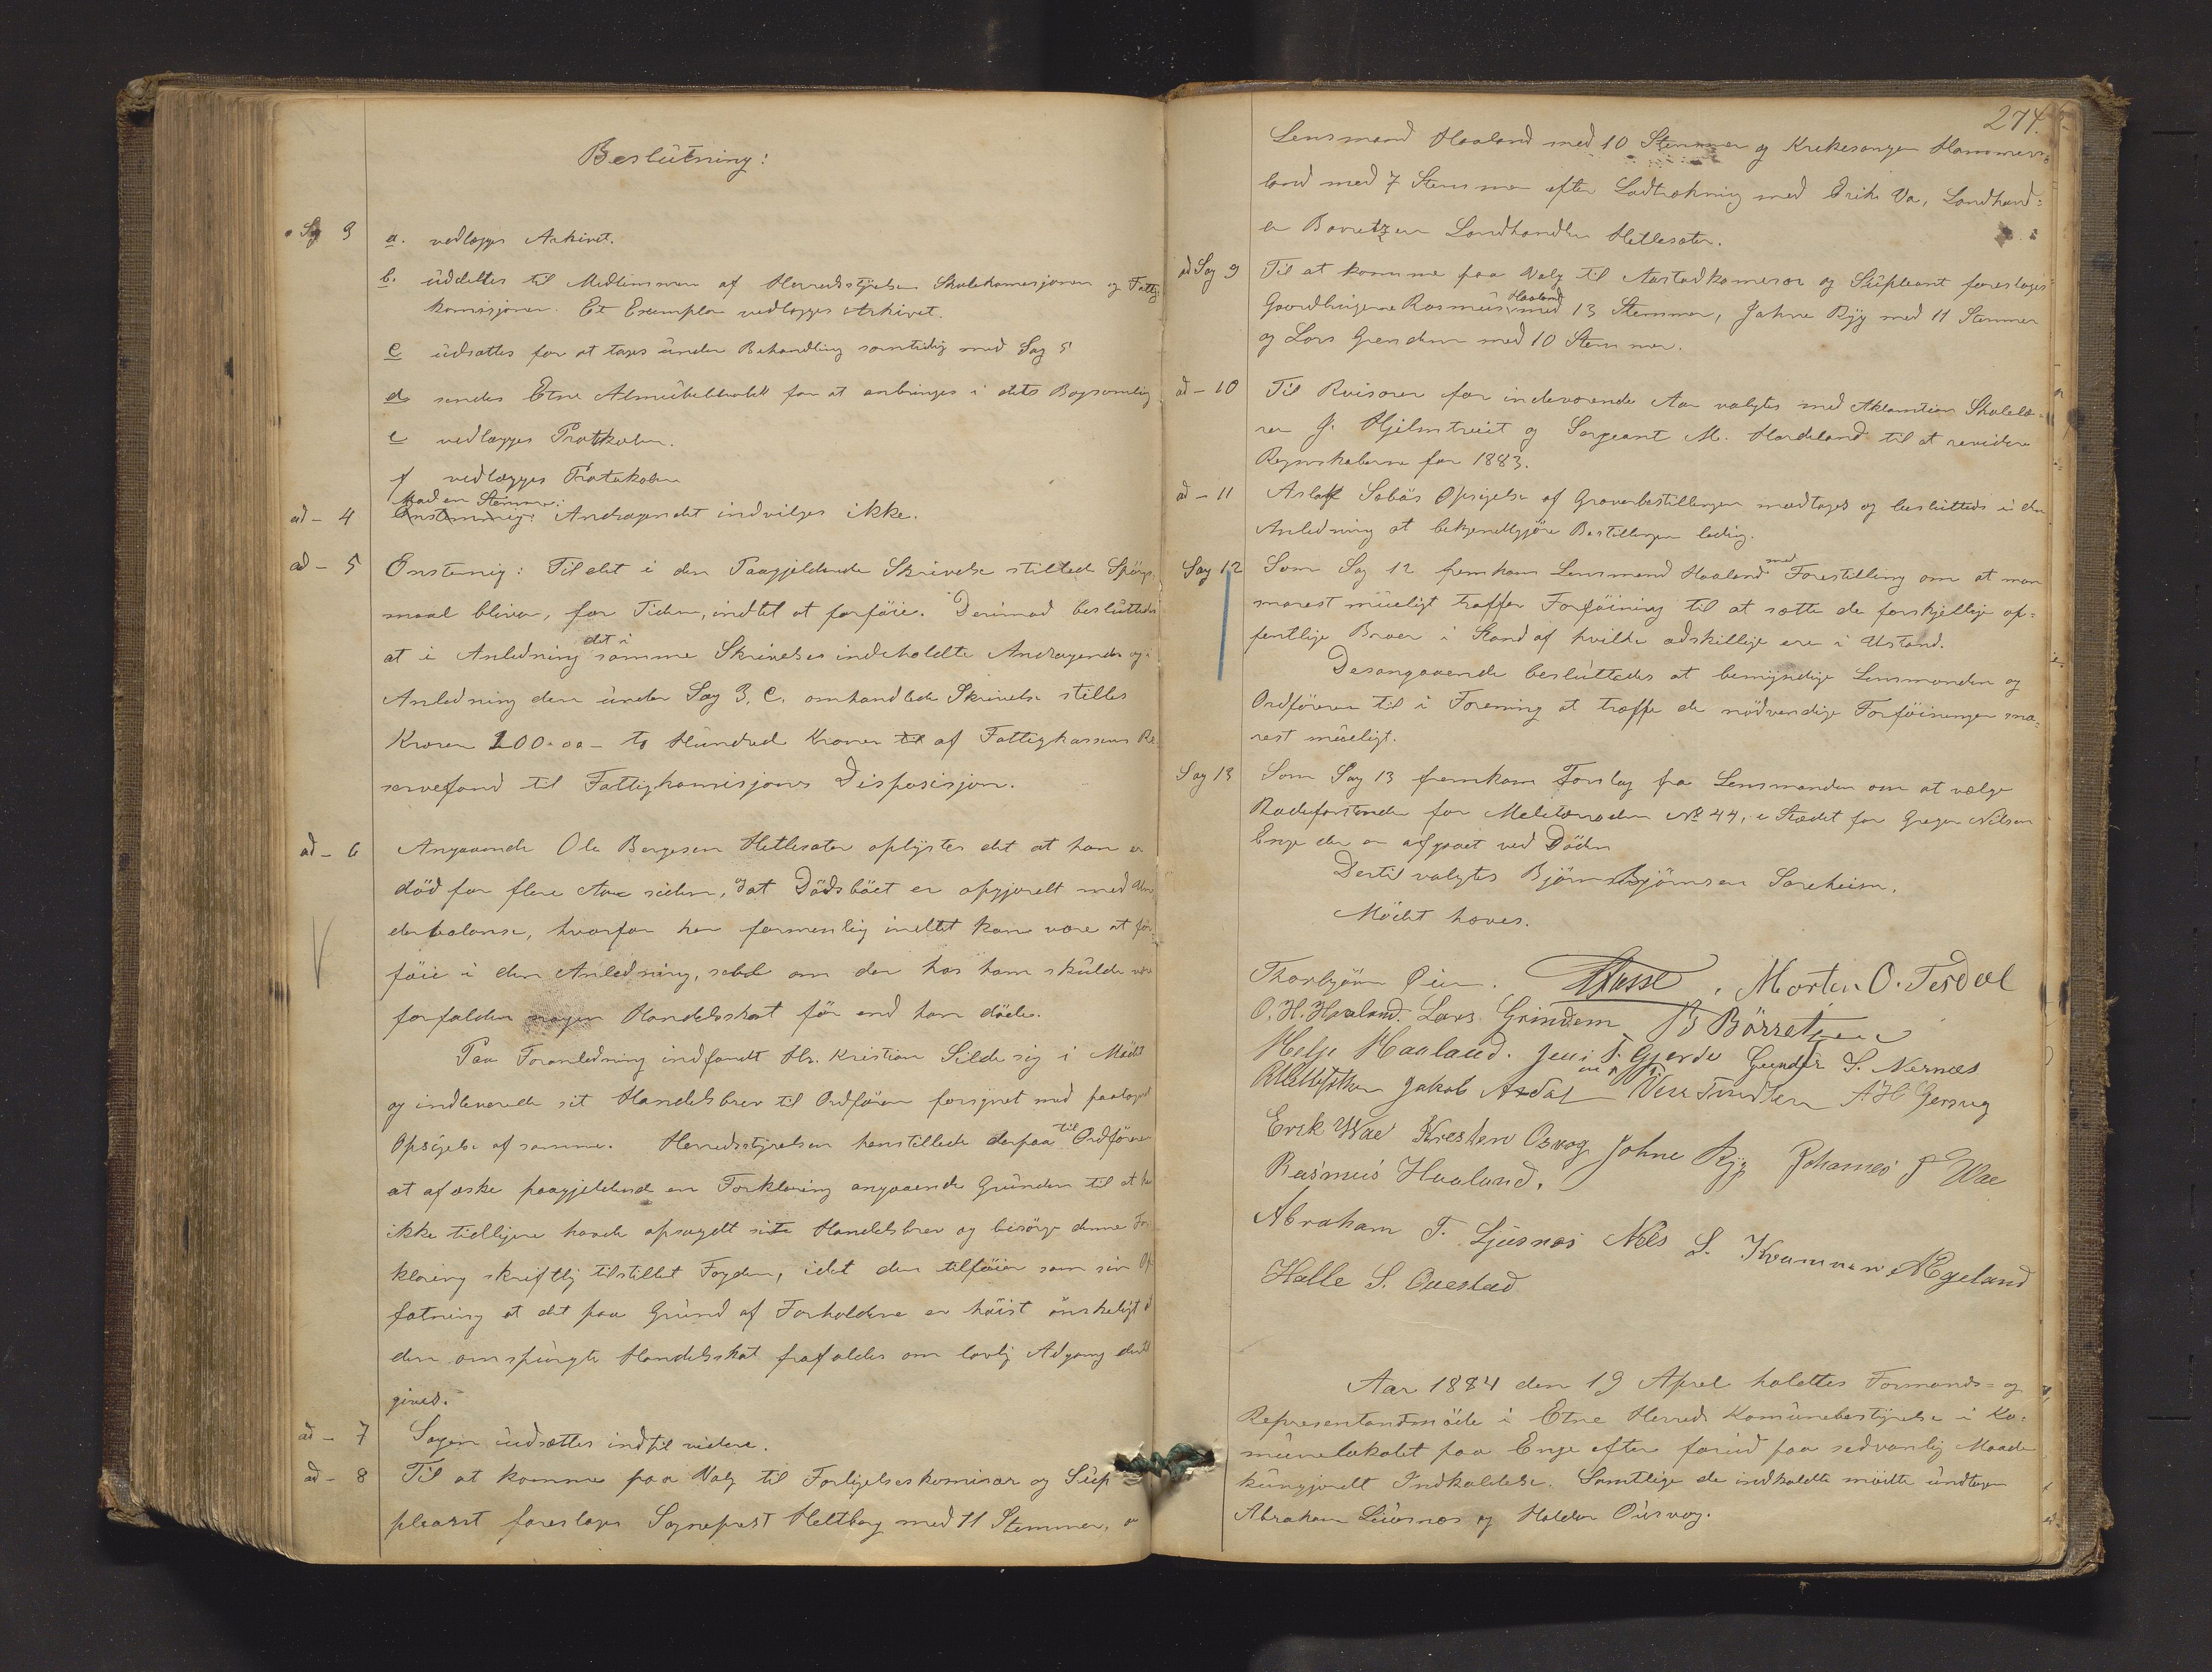 Beslutning:
Sag 3 a. vedlægges Arkivet.
b. uddeltes til Medlemmerne af Herredsstyrelsen Skolekomisjonen og Fattig
komisjonen. Et Exemplar vedlægges Arkivet.
c udsættes for at tages under Behandling samtidig med Sag 5
d sendes Etne Almuebibliothek for at anbringes i dets Bogsamling
e vedlægges Protokolen.
f vedlægges Protokolen
Mod en Stemme:
ad - 4 Enstemmig: Andragendet indvilges ikke.
ad - 5 Enstemig: Til det i den Paagjeldende Skrivelse stillede Spörgs-
maal bliver, for Tiden, indtet at forföie. Derimod besluttedes
at i Anledning det i samme Skrivelse indeholdte Andragende og i
Anledning den under Sag 3, C. omhandlede Skrivelse stilles
Kroner 200.00 - to Hundred Kroner til af Fattigkassens Re-
servefond til Fattigkomisjonens Disposisjon.
ad - 6 Angaaende Ole Bergesen Hetlesæter oplystes det at han er
död for flere Aar siden, og at Dödsböet er opgjordt med Un-
derbalanse, hvorfor her formenlig indtet kan være at for-
föie i den Anledning, selv om der hos ham skulde være
forfalden nogen Handelsskat för end han döde.
Paa Foranledning indfandt Hr. Kristian Silde sig i Mödet
og indleverede sit Handelsbrev til Ordföreren forsynet med paategnet
Opsigelse af samme. Herredsstyrelsen henstillede derpaa til Ordföreren
at afæske paagjeldende en Forklaring angaaende Grunden til at han
ikke tidligere havde opsagdt site Handelsbrev og besörge denne For-
klaring skriftlig tilstillet Fogden, idet den tilföier som sin Op-
fatning at det paa Grund af Forholdene er höist önskeligt at
den omspurgte Handelsskat frafaldes om lovlig Adgang dertil
gives.
ad - 7 Sagen udsættes indtil videre.
ad - 8 Til at komme paa Valg til Forligelseskomisær og Sup-
pleant foreslages Sogneprest Heltberg med 11 Stemmer, og
274.
Lensmand Haaland med 10 Stemmer og Kirkesanger Hammers-
land med 7 Stemmer efter Lodtrækning med Erik Va, Landhand-
er Börretzen Landhandler Hetlesæter.
ad Sag 9 Til at komme paa Valg til Aastadkomesær og Supleant foreslages
Gaardbrugerne Rasmus Haaland med 13 Stemmer, Johne Ryg med 11 Stemmer
og Lars Grendem med 10 Stemmer.
ad - 10 Til Revisorer for indeværende Aar valgtes med Aklamtion Skolelæ-
rer J. Hjelmtveit og Sergeant M. Hardeland til at revidere
Regnskaberne for 1883.
ad - 11 Aslak Sæbös Opsigelse af Graverbestillingen modtoges og besluttedes i den
Anledning at bekjendtgjöre Bestillingen ledig.
Sag 12 Som Sag 12 fremkom Lensmand Haaland med Forestilling om at man
snarest mueligt træffer Forföining til at sætte de forskjellige of-
fentlige Broer i Stand af hvilke adskillige ere i Ustand.
Desangaaende besluttedes at bemyndige Lensmanden og
Ordföreren til i Forening at træffe de nödvendige Forföininger sna-
rest mueligt.
Sag 13 Som Sag 13 fremkom Forslag fra Lensmanden om at vælge
Rodeforstander for Meletærroden No 44, i Stædet for Greger Nilsen
Enge der er afgaaet ved Döden
Dertil valgtes Björn Björnsen Særeheim.
Mödet hæves.
Thorbjörn Öien. Morten O. Tesdal
O. H. Haaland. Lars Grindem Börretzen
Helje Haaland. Jens T. Gjerde Gunder S. Nernæs
Jakob Ardal A H Gersvig
Erik Wae Kresten Osvog Johne Ryg Johanes J Wae
Rasmus Haaland.
Abraham T. Ljusnes Nels S. Kvammen. Ægeland
Halle S. Ouestad
Aar 1884 den 19 April holdtes Formands- og
Representantmöde i Etne Herreds Komunebestyrelse i Ko-
munelokalet paa Enge efter forud paa sedvanlig Maade
kungjordt Indkaldelse. Samtlige de indkaldte mödte undtagen
Abraham Liusnes og Haldor Ousvog.